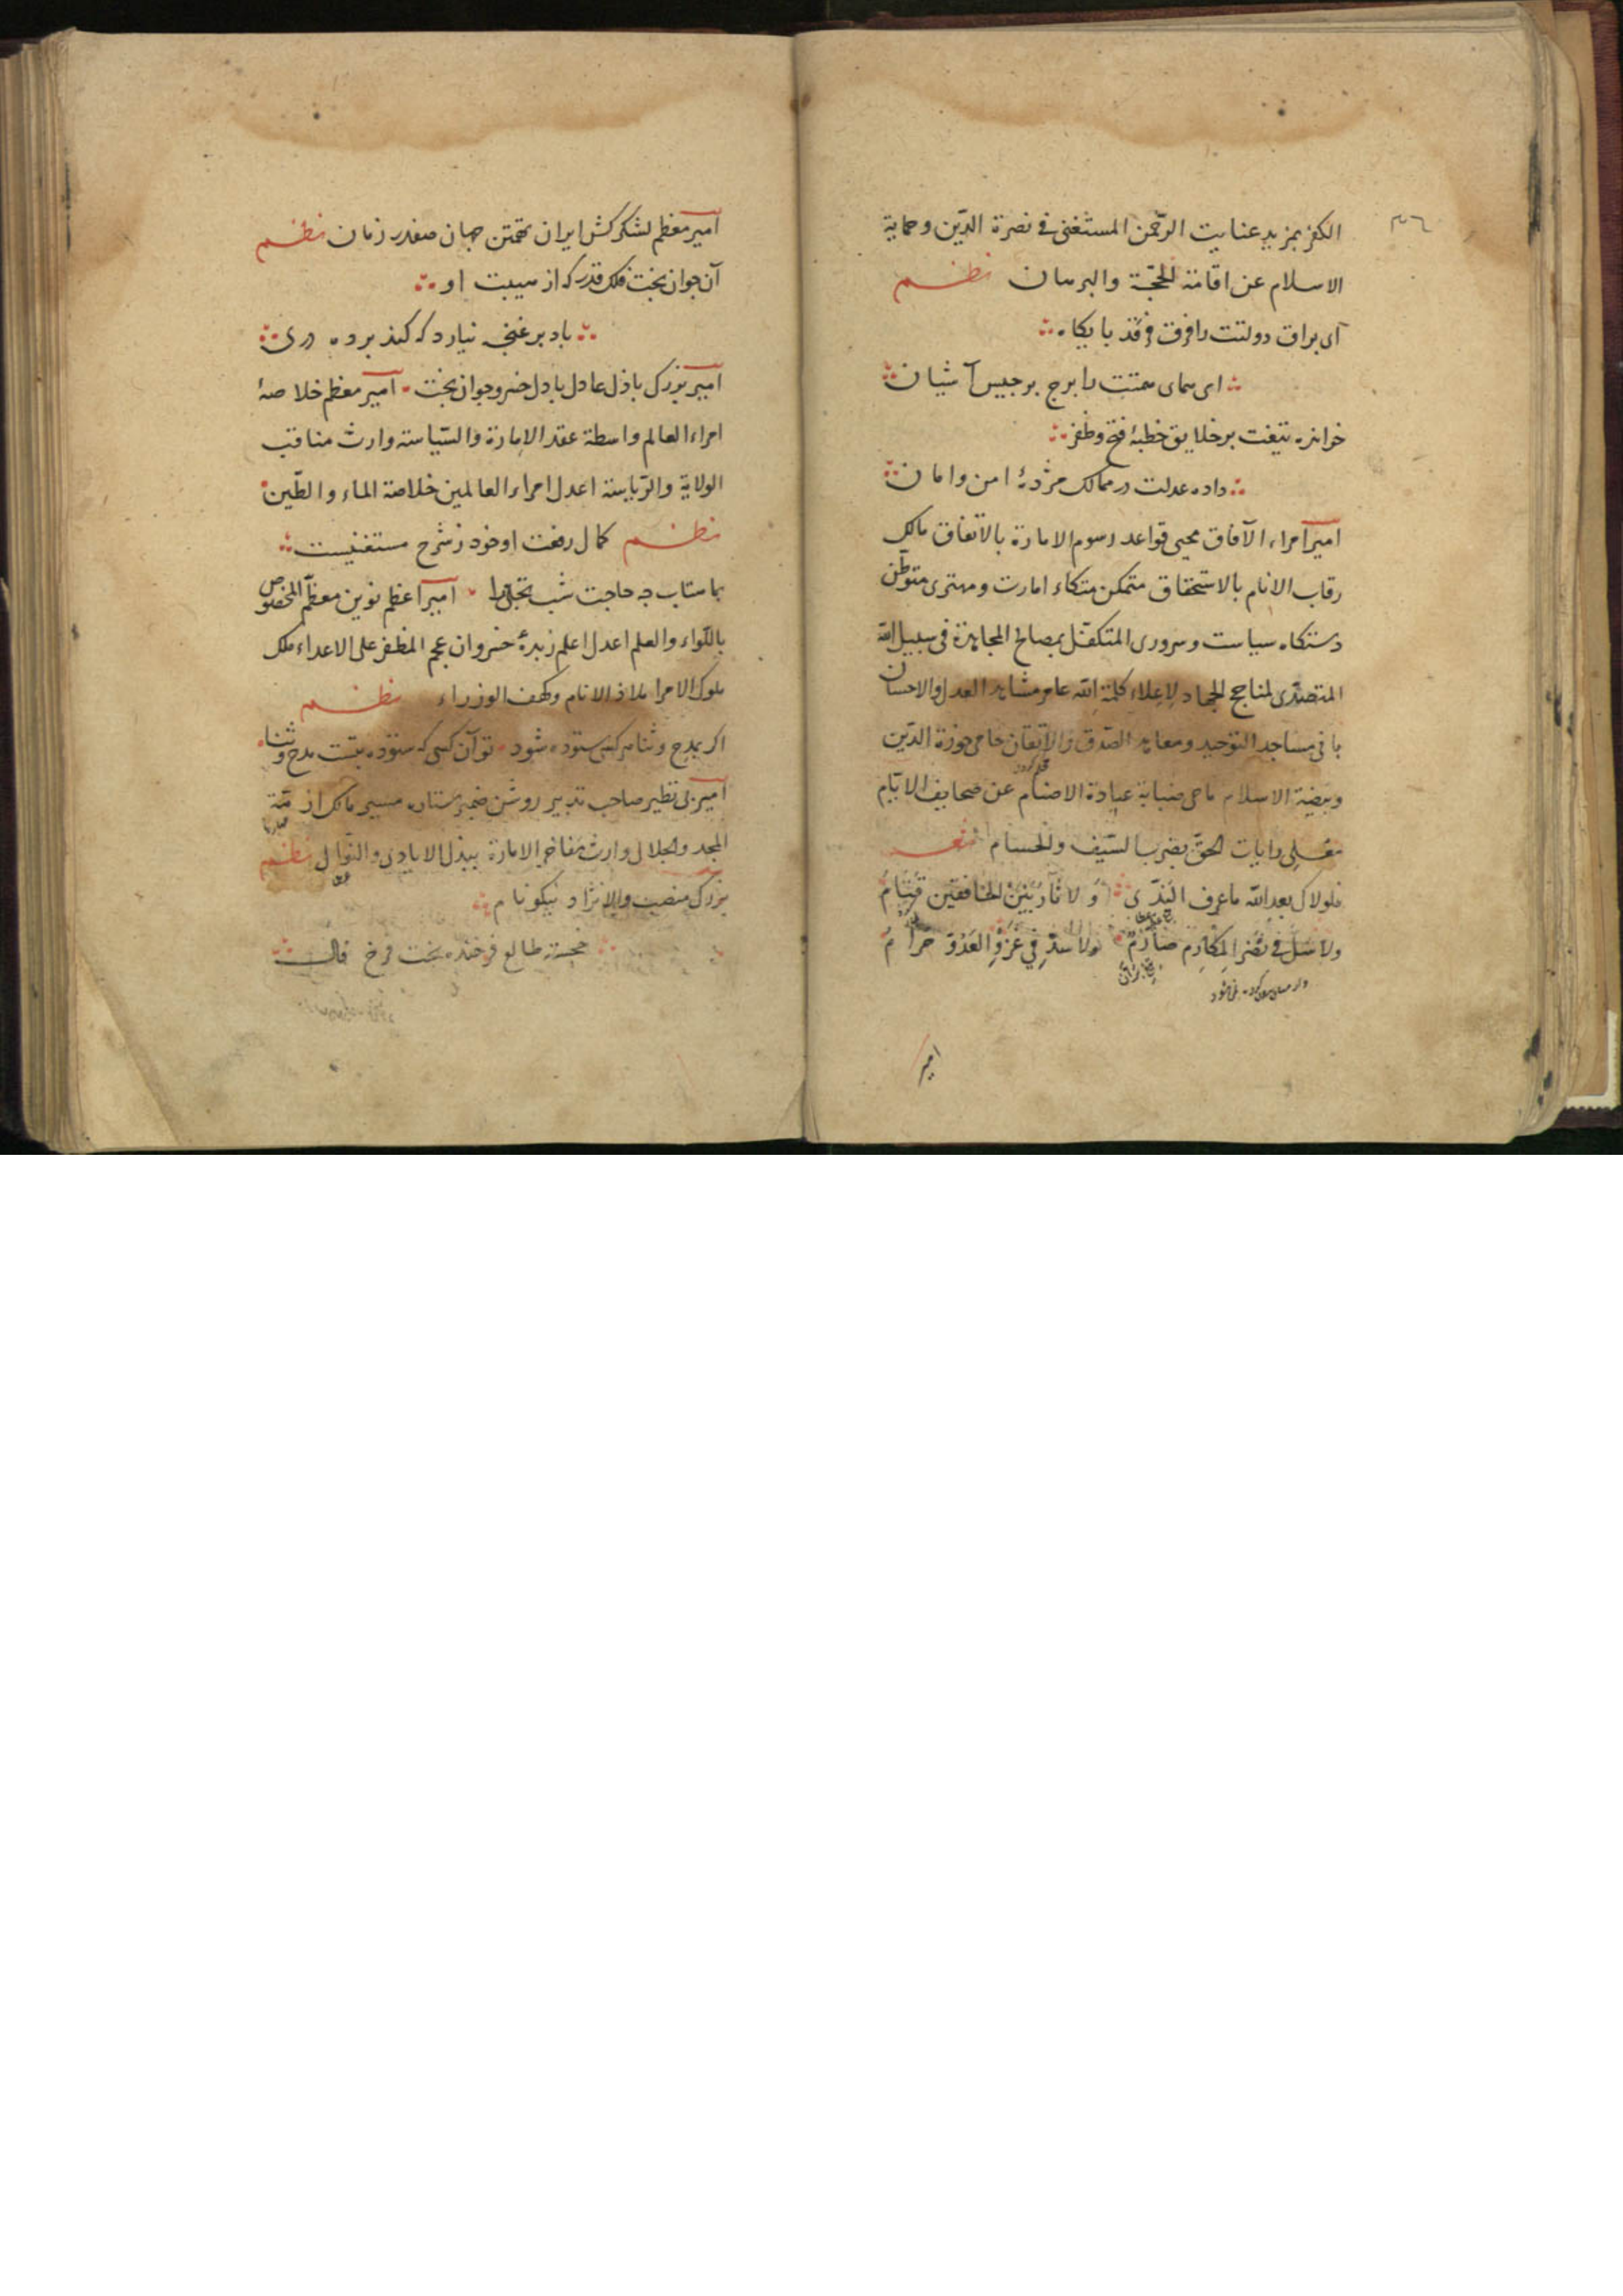 ٣٦
الکفر بمزید عنایت الرّحمن المستغنی فی نصرة الدّین و حمایة
الاسلام عن اقامة الحجّة والبرهان نظم
ای براق دولتت را فرق فرقد پایکاه
ای همای همتت را برج برجیس آشیان
خوانده تیغت بر خلایق خطبهٔ فتح و ظفر
داده عدلت در ممالک مژدهٔ امن و امان
امیر امراء الآفاق محیی قواعد رسوم الامارة بالاتفاق مالک
رقاب الانام بالاستحقاق متمکن متکاء امارت و مهتری متوطّن
دستکاه سیاست و سروری المتکفّل بمصالح المجاهدة فی سبیل الله
المتصدّی لمناجح الجهاد لاعلاء کلمة الله عامر مشاهد العدل والاحسان
بانی مساجد التوحید و معابد الصّدق والایقان حامی حوزة الدّین
وبیضة الاسلام ماحی عبادة الاصنام عن صحایف الایّام
معلی رایات الحقّ بضرب السّیف والحسام شعر
فلولاک بعد الله ما عرف النّدی ولا ثار بین الخافقین قتام
ولا سلّ فی نصر المکارم صارم ولا شدّ فی غزو العدوّ حزام
امیر
امیر معظم لشکرکش ایران تهمتن جهان صفدر زمان نظم
آن جوان بخت فلک قدر که از هیبت او
باد بر غنچه نیارد که کند پرده دری
امیر بزرک باذل عادل بادل خسرو جوان بخت امیر معظم خلاصهٔ
امراء العالم واسطة عقد الامارة والسّیاسة وارث مناقب
الولایة والرّیاسة اعدل امراء العالمین خلاصة الماء والطّین
نظم کمال رفعت او خود ز شرح مستغنیست
بماهتاب چه حاجت شب تجلّی را امیر اعظم نوین معظّم المخصوص
باللّواء والعلم اعدل اعلم زبدهٔ خسروان عجم المظفر علی الاعداء ملک
ملوک الامرا ملاذ الانام وکهف الوزراء نظم
اکر بمدح و ثنا هر کسی ستوده شود تو آن کسی که ستوده بتست مدح و ثنا
امیر بی نظیر صاحب تدبیر روشن ضمیر ستاره مسیر مالک ازمّة
المجد والجلال وارث مفاخر الامارة ببذل الایادی والنّوال نظم
بزرک منصب و والا نژاد و نیکو نام
خجسته طالع و فرخنده بخت و فرخ فال